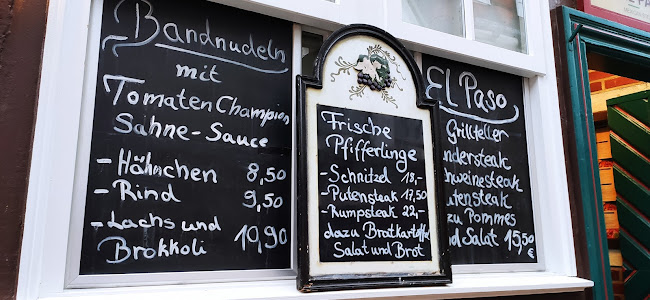 Bandnudeln
mit
Tomaten Champion
Sahne-Sauce
- Hähnchen 8,50
- Rind 9,50
- Lachs und
Brokkoli 10,90
Frische
Pfifferlinge
- Schnitzel 18,-
- Putensteak 17,50
- Rumpsteak 22,-
dazu Bratkartoffel
Salat und Brot
El Paso
Grillteller
ndersteak
weinesteak
utensteak
zu Pommes
nd Salat 15,50
€